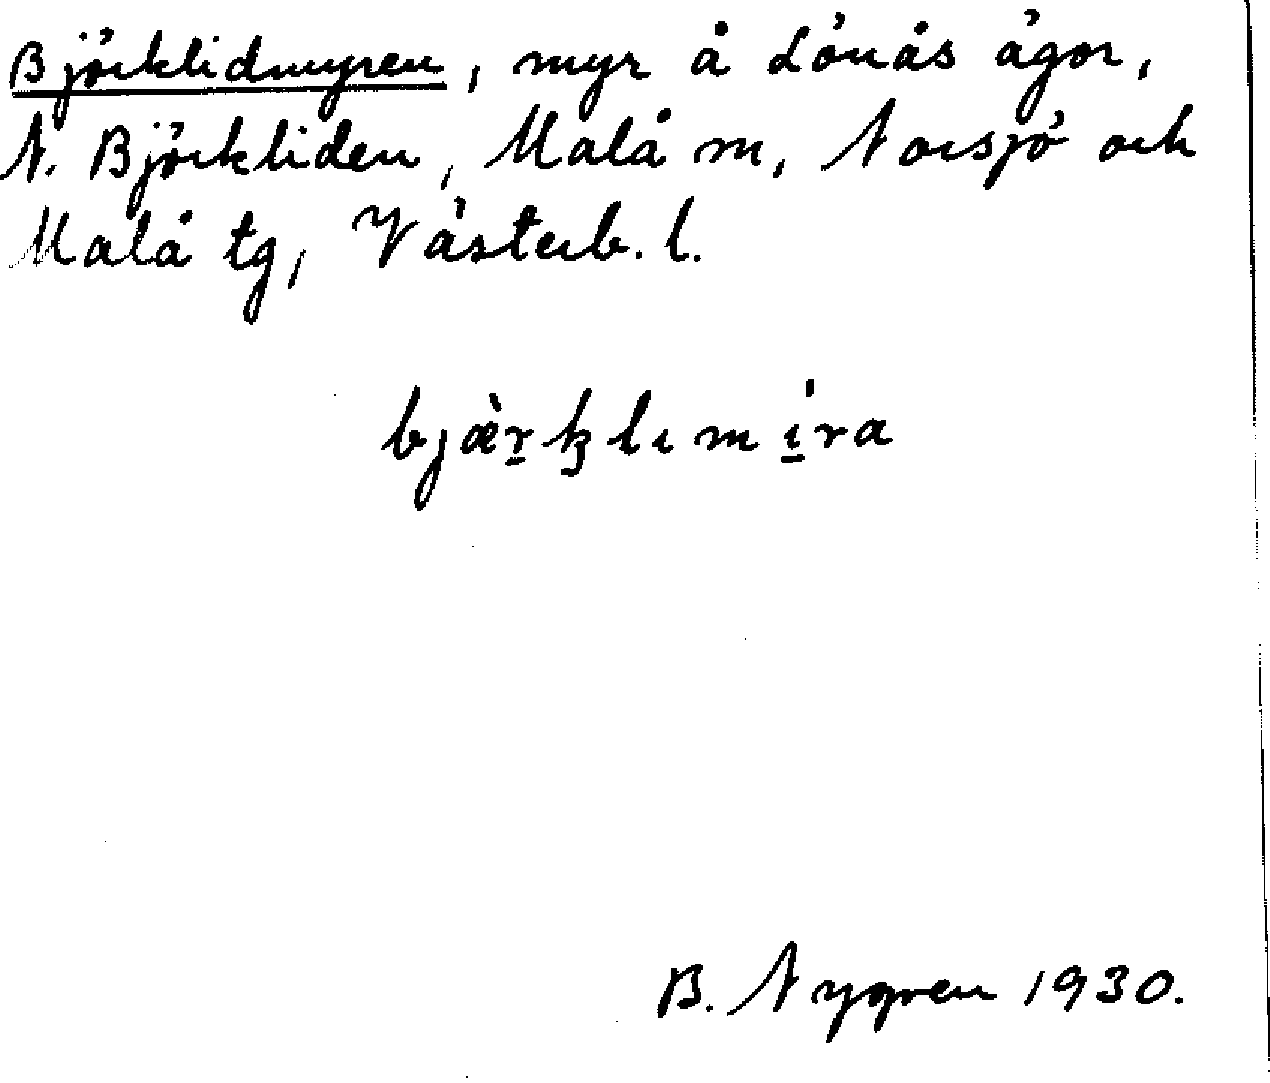 Björklidmyren, myr å Lönås ägor,
N. Björkliden, Malå m, Norsjö och
Malå tg, Västerb. l.
bjæ̀r̲ꞣlımí̲ra
B. Nygren 1930.